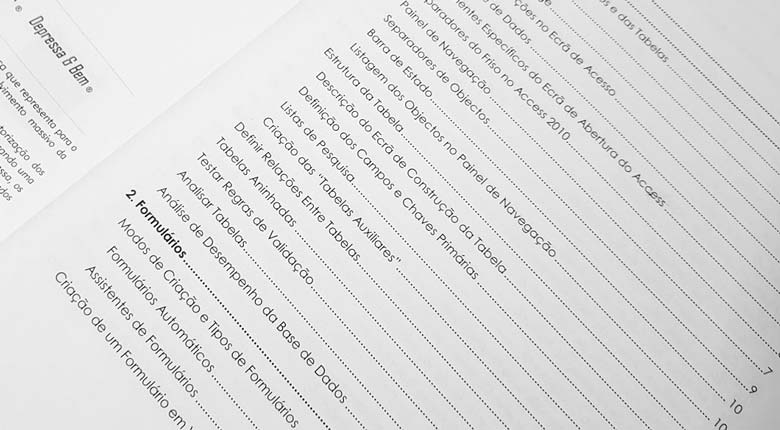 Depressa & Bem ®
®
que represento para o
vimento massivo da
torização dos
ando uma
os
dos
s e das Tabelas
ções no Ecrã de Acesso
de Dados
entes Específicos do Ecrã de Abertura do Access
paradores do Friso no Access 2010
Painel de Navegação
Separadores de Objectos
Barra de Estado
Listagem dos Objectos no Painel de Navegação
Estrutura da Tabela
Descrição do Ecrã de Construção da Tabela
Definição dos Campos e Chaves Primárias
Criação das "Tabelas Auxiliares"
Listas de Pesquisa
Definir Relações Entre Tabelas
Tabelas Aninhadas
Testar Regras de Validação
Analisar Tabelas
Análise de Desempenho da Base de Dados
2. Formulários
Modos de Criação e Tipos de Formulários
Formulários Automáticos
Assistentes de Formulários
Criação de um Formulário em
7
9
10
10